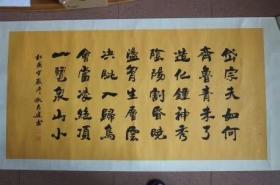 岱宗夫如何
齊魯青未了
造化鍾神秀
陰陽割昏曉
盪胷生層雲
決眦入歸鳥
會當凌絕頂
一覽眾山小